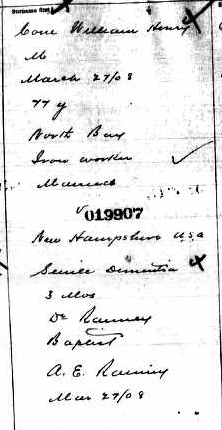 Surname first
Cone William Henry
M
March 27/08
77 y
North Bay
Iron worker
Married
019907
New Hampshire USA
Senile Dementia
3 Mos
Dr Ranney
Baptist
A. E. Ranney
Mar 27/08